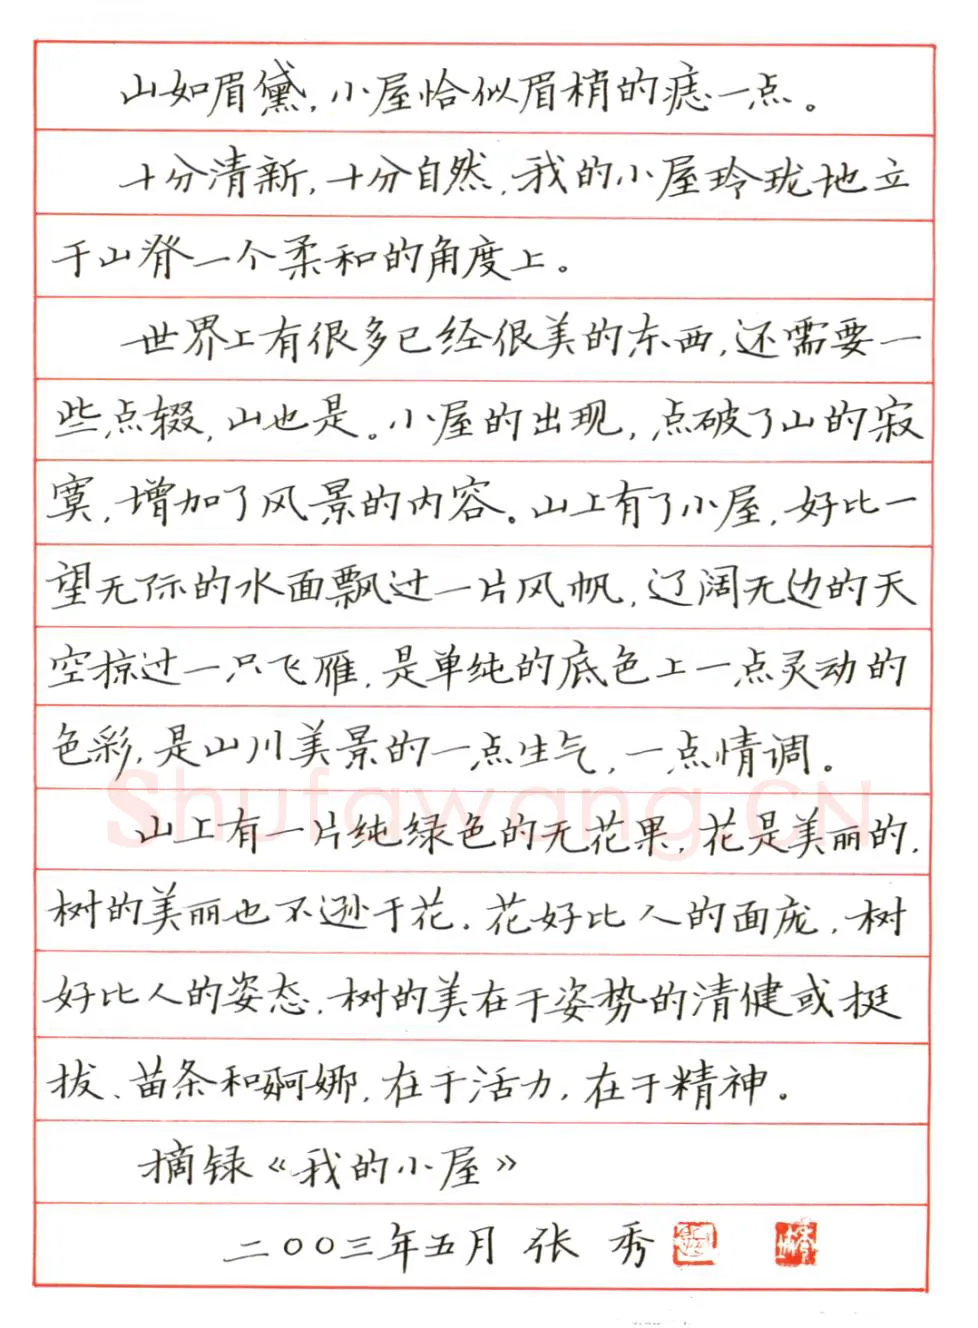 山如眉黛,小屋恰似眉梢的痣一点。
十分清新,十分自然,我的小屋玲珑地立
于山脊一个柔和的角度上。
世界上有很多已经很美的东西,还需要一
些点缀,山也是。小屋的出现,点破了山的寂
寞,增加了风景的内容。山上有了小屋,好比一
望无际的水面飘过一片风帆,辽阔无边的天
空掠过一只飞雁,是单纯的底色上一点灵动的
色彩,是山川美景的一点生气,一点情调。
山上有一片纯绿色的无花果,花是美丽的,
树的美丽也不逊于花。花好比人的面庞,树
好比人的姿态。树的美在于姿势的清健或挺
拔、苗条和婀娜,在于活力,在于精神。
摘录《我的小屋》
二〇〇三年五月 张 秀
Shufawang.CN